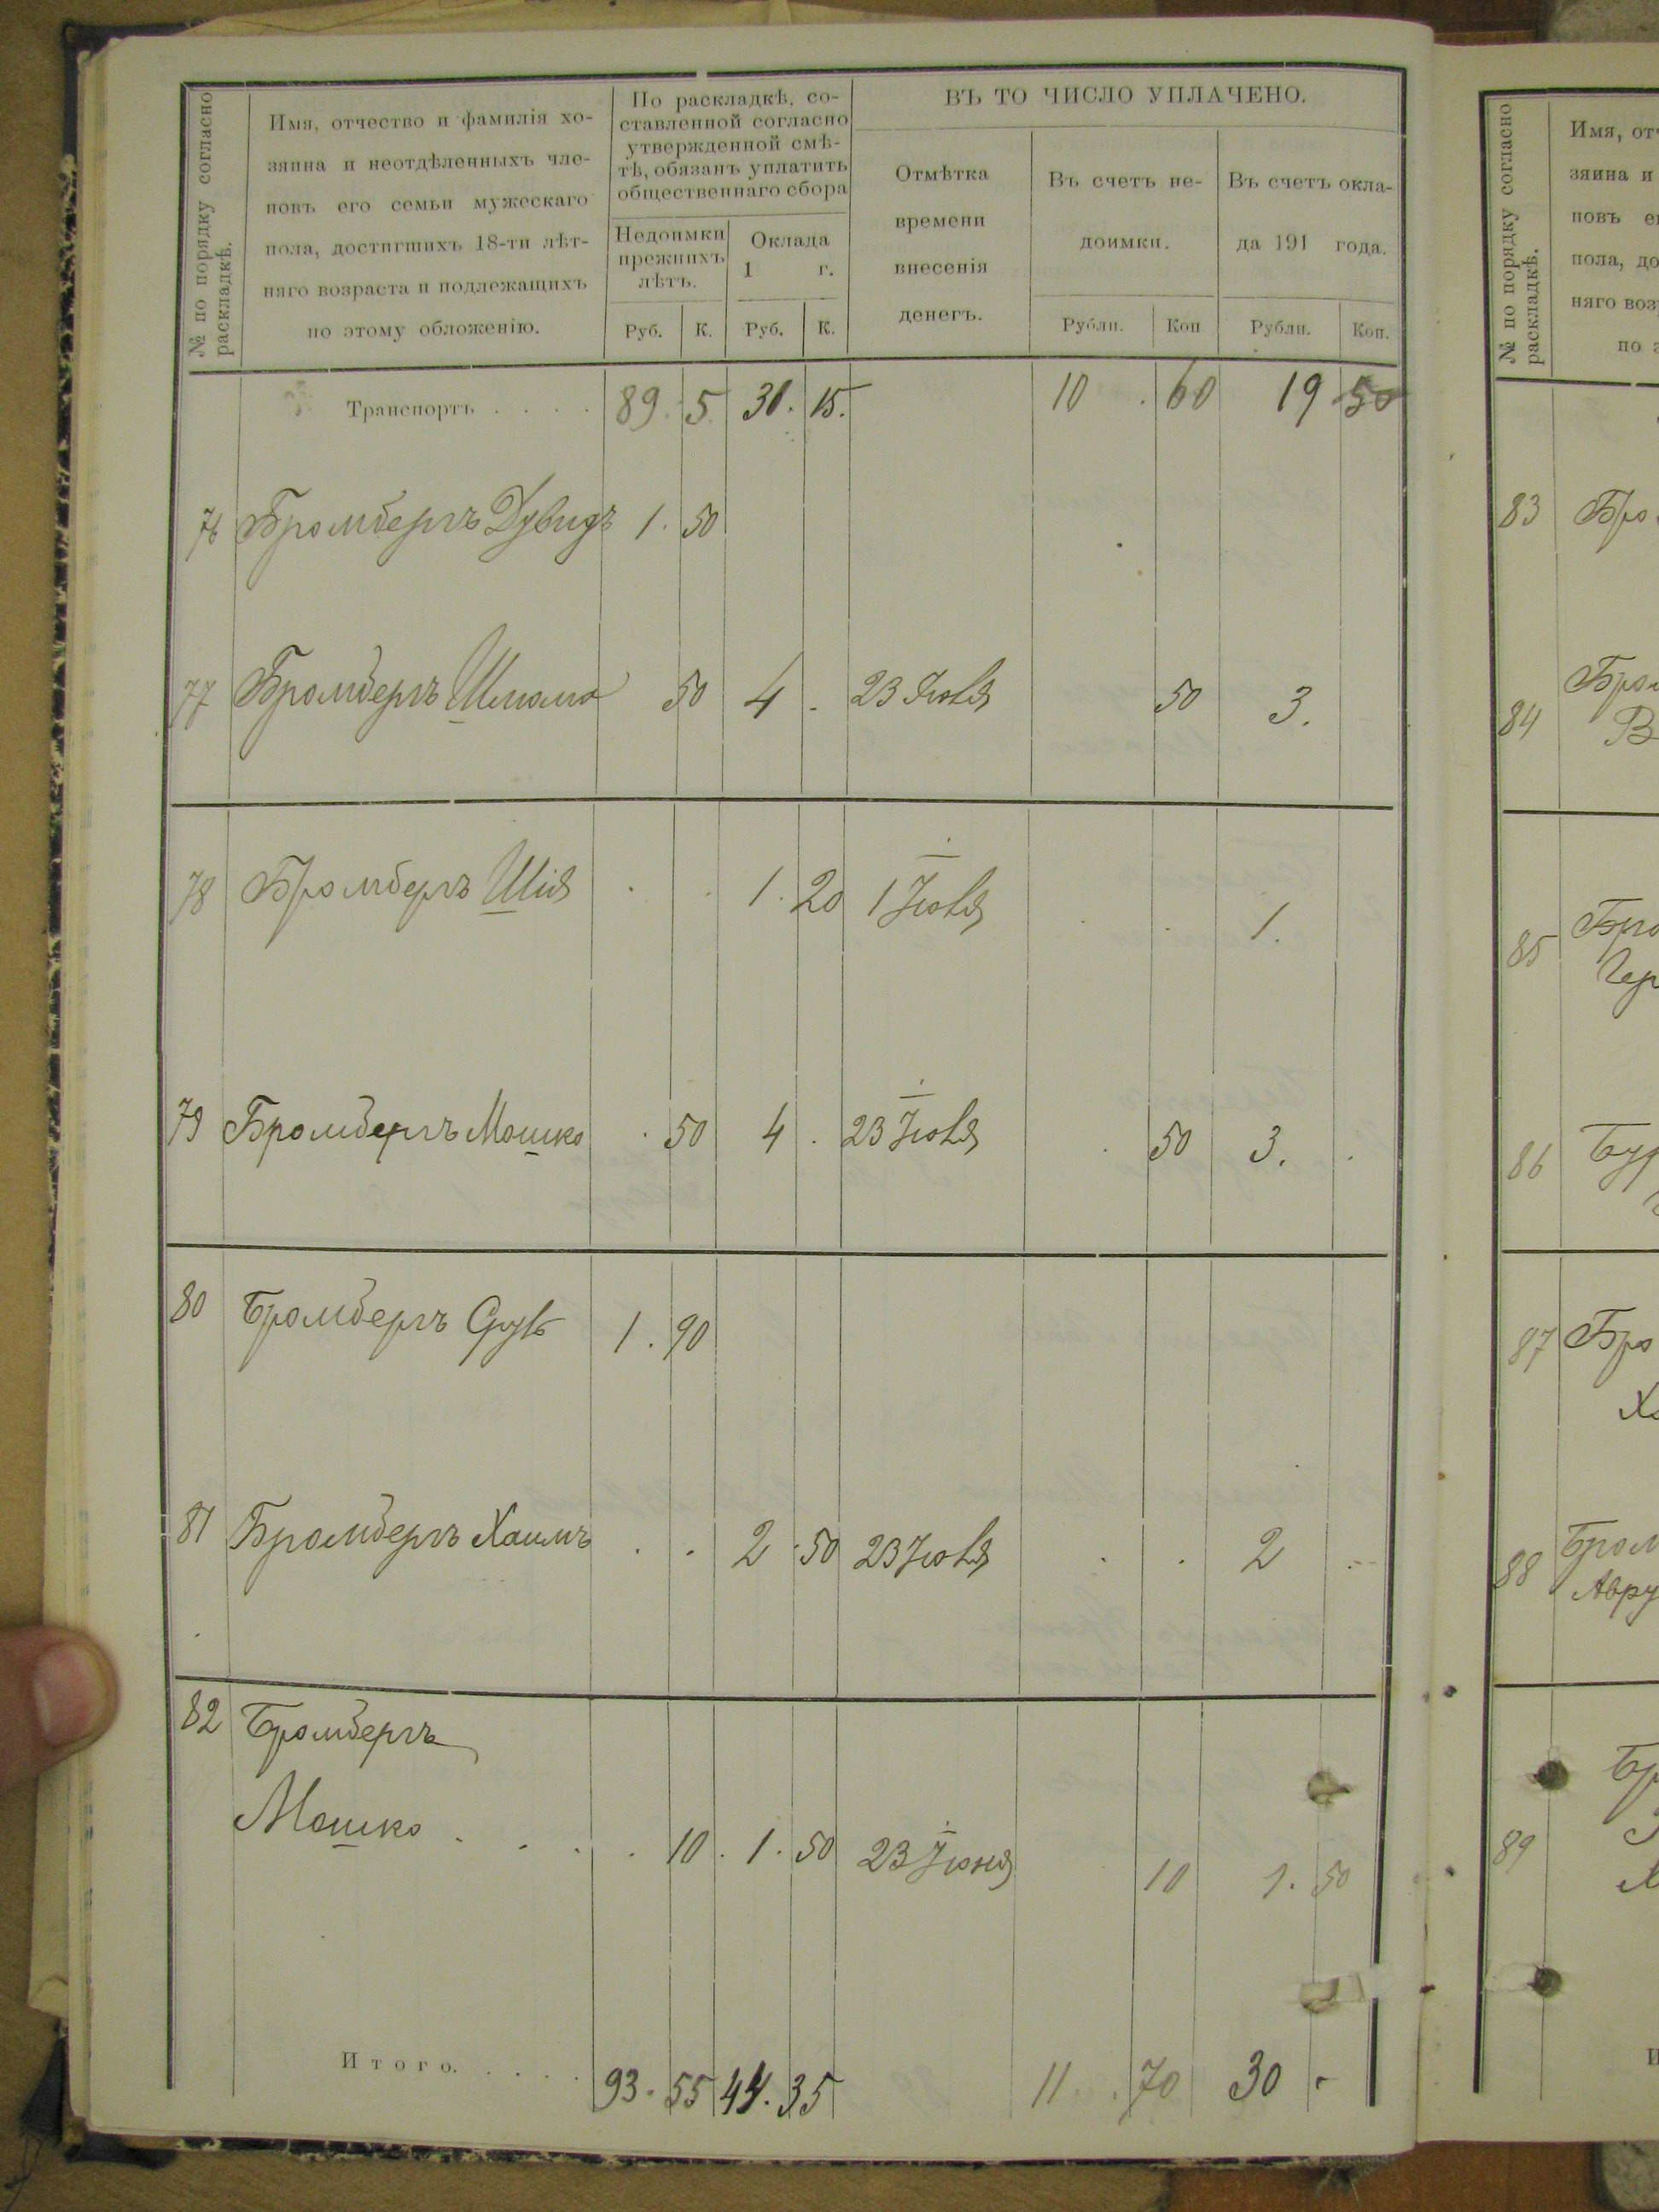 № по порядку согласно
раскладкѣ.
Имя, отчество и фамилія хо-
зяина и неотдѣленныхъ чле-
новъ его семьи мужескаго
пола, достигшихъ 18-ти лѣт-
няго возраста и подлежащихъ
по этому обложенію.
По раскладкѣ, со-
ставленной согласно
утвержденной смѣ-
тѣ, обязанъ уплатить
общественнаго сбора
Недоимки
прежнихъ
лѣтъ.
Оклада
1 г.
Руб. К. Руб. К.
ВЪ ТО ЧИСЛО УПЛАЧЕНО.
Отмѣтка
времени
внесенія
денегъ.
Въ счетъ не-
доимки.
Въ счетъ окла-
да 191 года.
Рубли. Коп Рубли. Коп.
Транспортъ . . . . 89. 5. 31. 15. 10 . 60 19 50
76 Бромбергъ Дувидъ 1. 50
77 Бромбергъ Шлома 50 4 . 23 Июля 50 3.
78 Бромбергъ Шія . . 1. 20 1 Іюля . . 1.
79 Бромбергъ Мошко . 50 4 . 23 Іюля . 50 3. .
80 Бромбергъ 1. 90
81 Бромбергъ Хаимъ . . 2 . 50 23 Іюля . . 2
82 Бромбергъ
Мошко . . . . 10 . 1. 50 23 Іюня 10 1. 50
Итого. . . . . 93. 55 44. 35 11 . 70 30 -
№ по порядку согласно
раскладкѣ.
Имя, отч
зяина и
новъ е
пола, до
няго воз
по э
83 Бро
Бром
84 В
Бро
85 Гер
86
87 Бро
Ха
Бром
88 Авру
89